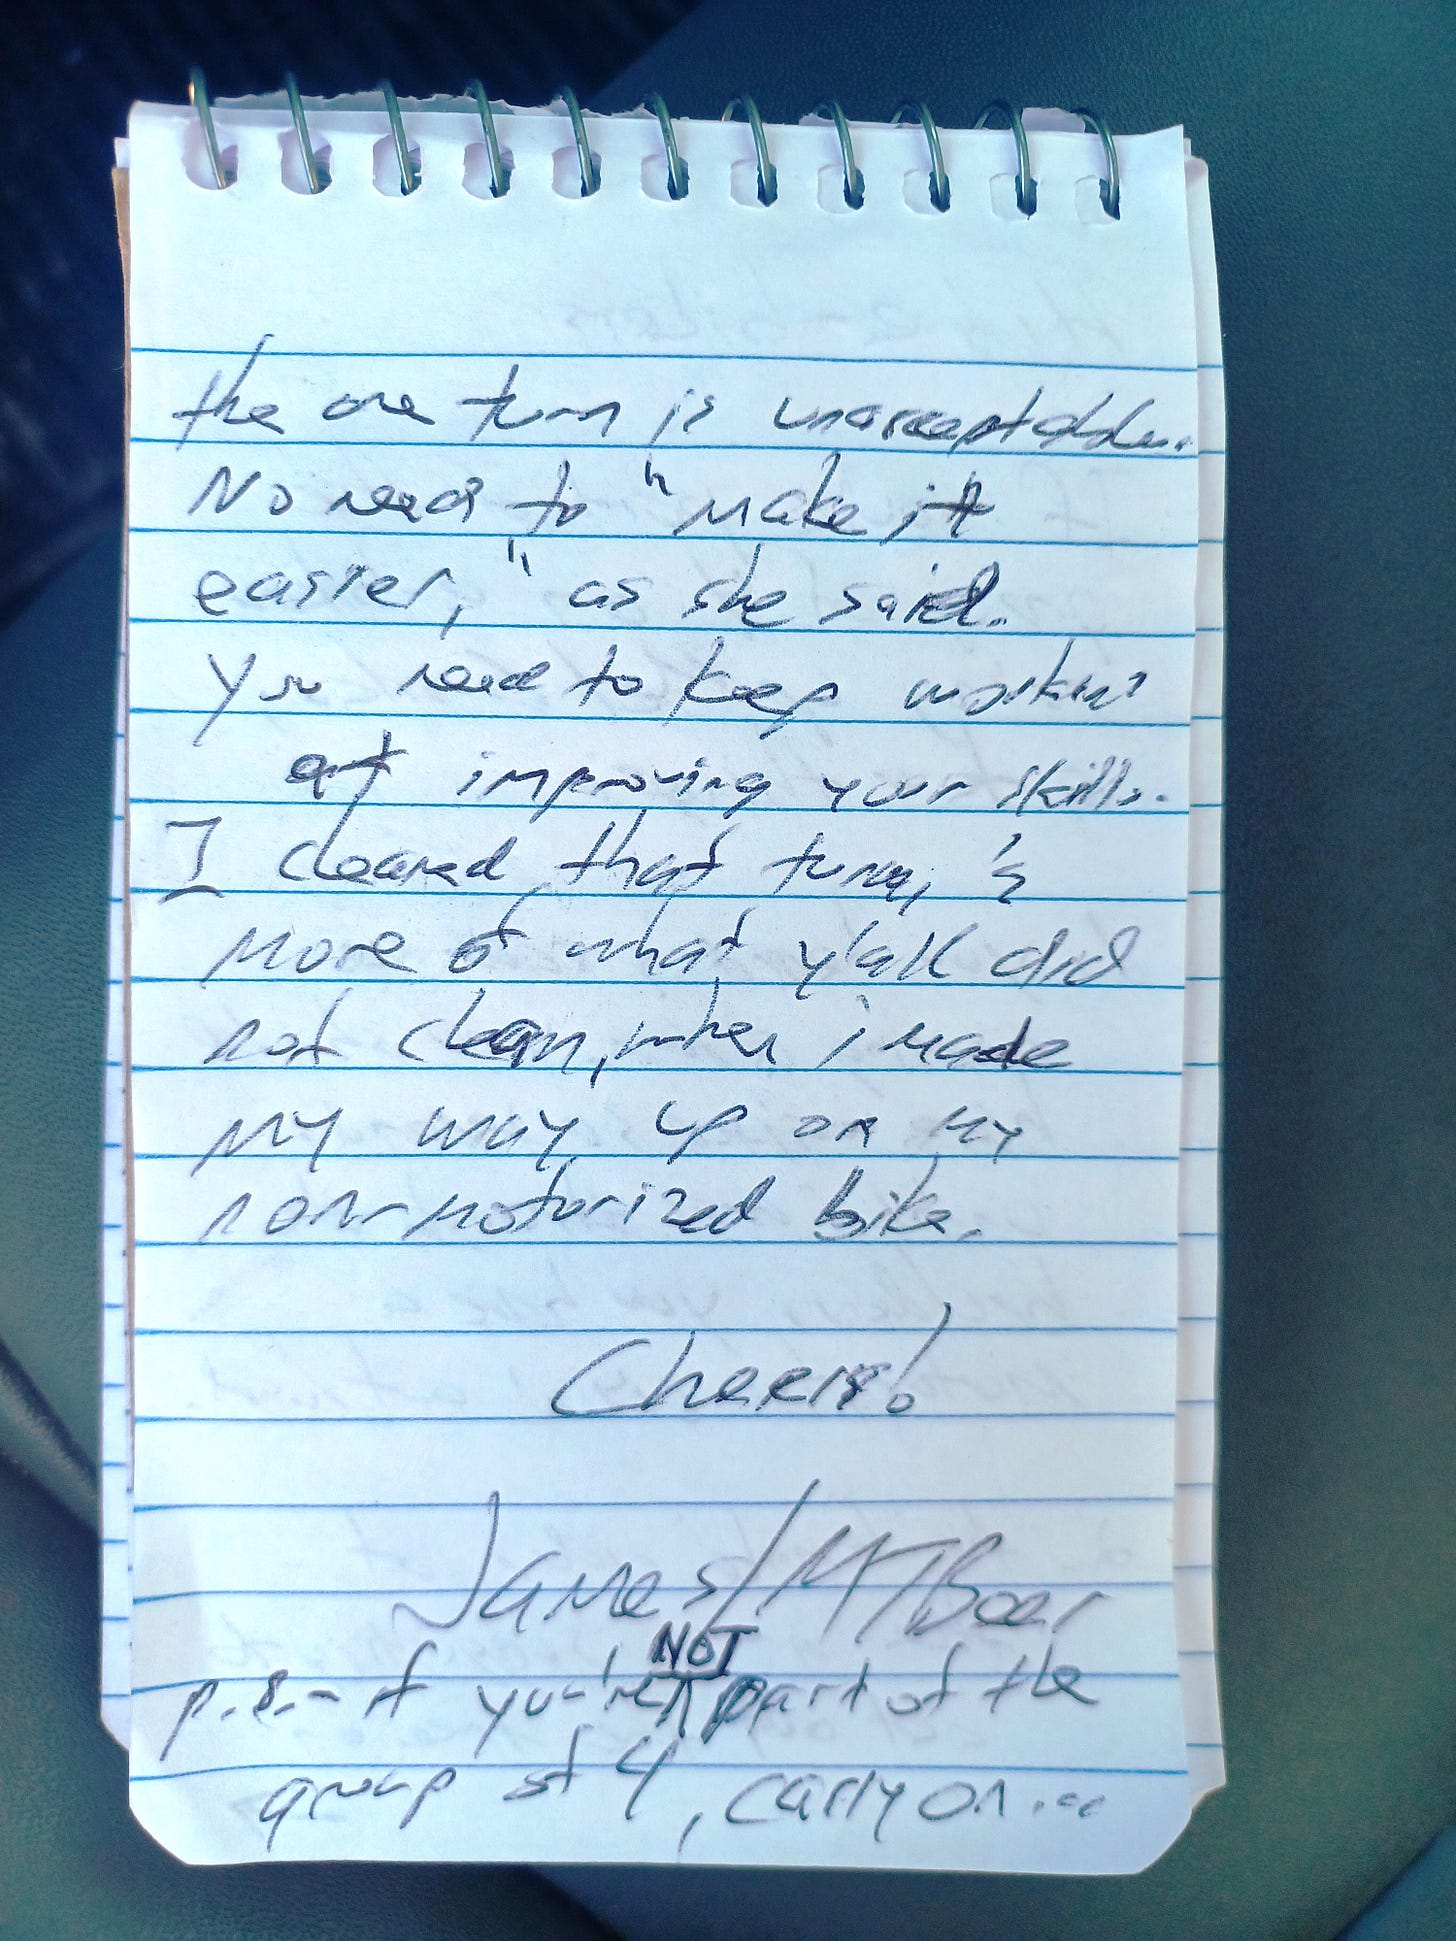 the one turn is unacceptable.
No need to "make it
easier," as she said.
You need to keep workin'
at improving your skills.
I cleared that turn, &
more of what y'all did
not clean, when i made
my way up on my
non-motorized bike.
Cheers!
James/MTBeer
NOT
p.s.- if you're part of the
group of 4, carry on...